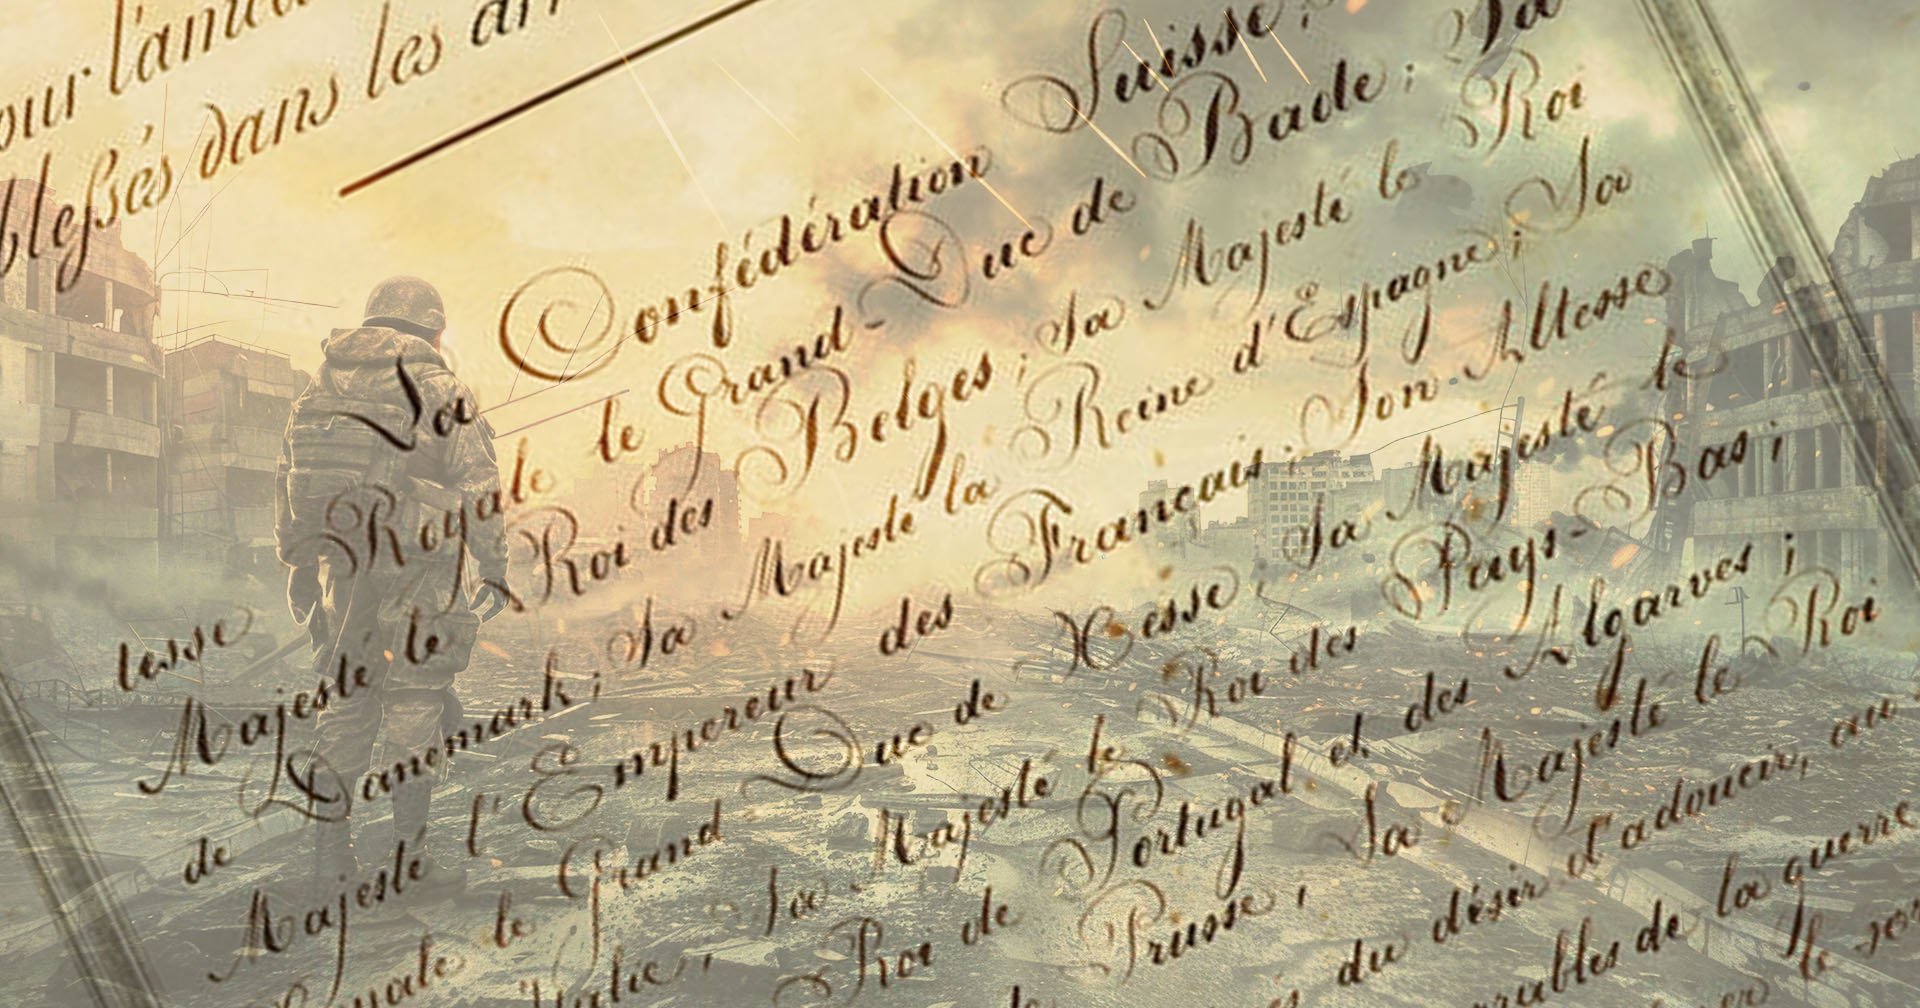 our l'amé
blessés dans les ar
La Confédération Suisse ;
tesse Royale le Grand-Duc de Bade ; Sa
Majesté le Roi des Belges ; Sa Majesté le Roi
de Danemark ; Sa Majesté la Reine d'Espagne ; Sa
Majesté l'Empereur des Français ; Son Altesse
yale le Grand Duc de Hesse ; Sa Majesté le
Italie ; Sa Majesté le Roi des Pays-Bas ;
Roi de Portugal et des Algarves ;
Prusse ; Sa Majesté le Roi
du désir d'adoucir, au
de la guerre
le